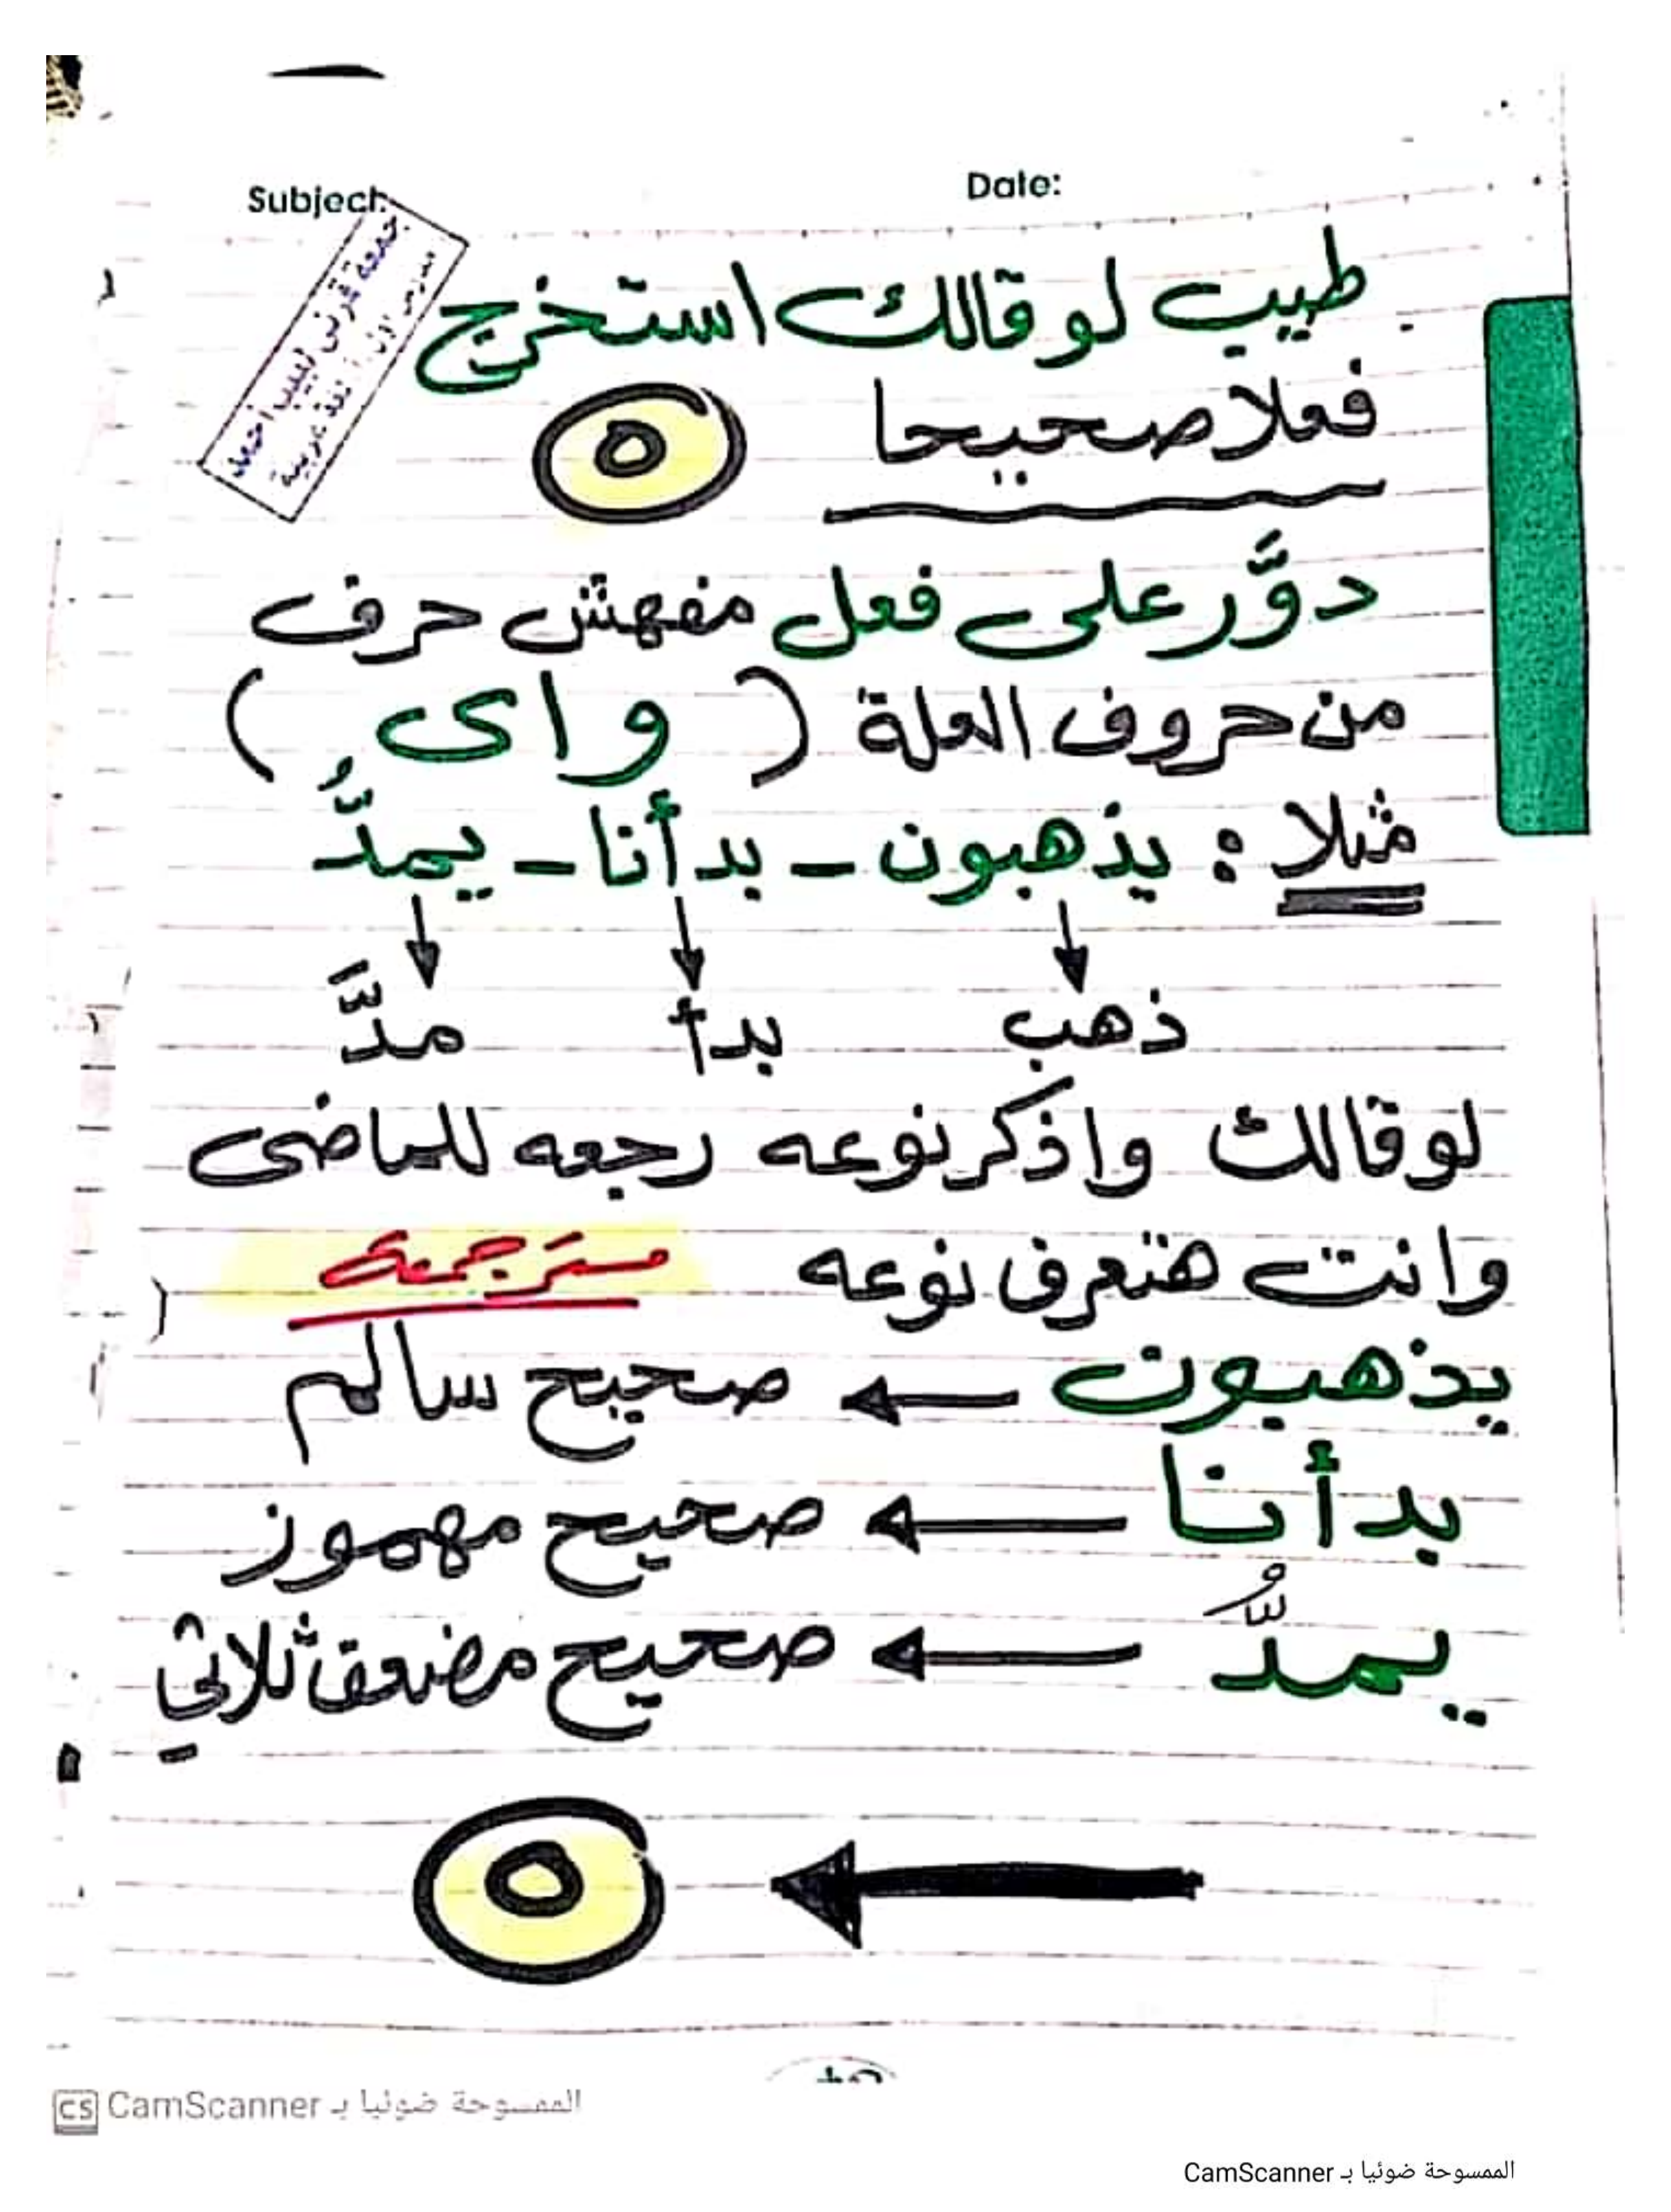 Subject:
Date:
جمعة قرني لبيب احمد
طيب لو قالك استخرج
فعلا صحيحا
٥
دوَّر على فعل مفهش حرف
من حروف العلة ( و ا ى )
مثلا : يذهبون - بدأنا - يمدُّ
ذهب بدأ مدَّ
لو قالك واذكر نوعه رجعه للماضى
وانت هتعرف نوعه
يذهبون ← صحيح سالم
بدأنا ← صحيح مهموز
يمدُّ ← صحيح مضعف ثلاثي
← ٥
CS CamScanner الممسوحة ضوئيا بـ
الممسوحة ضوئيا بـ CamScanner